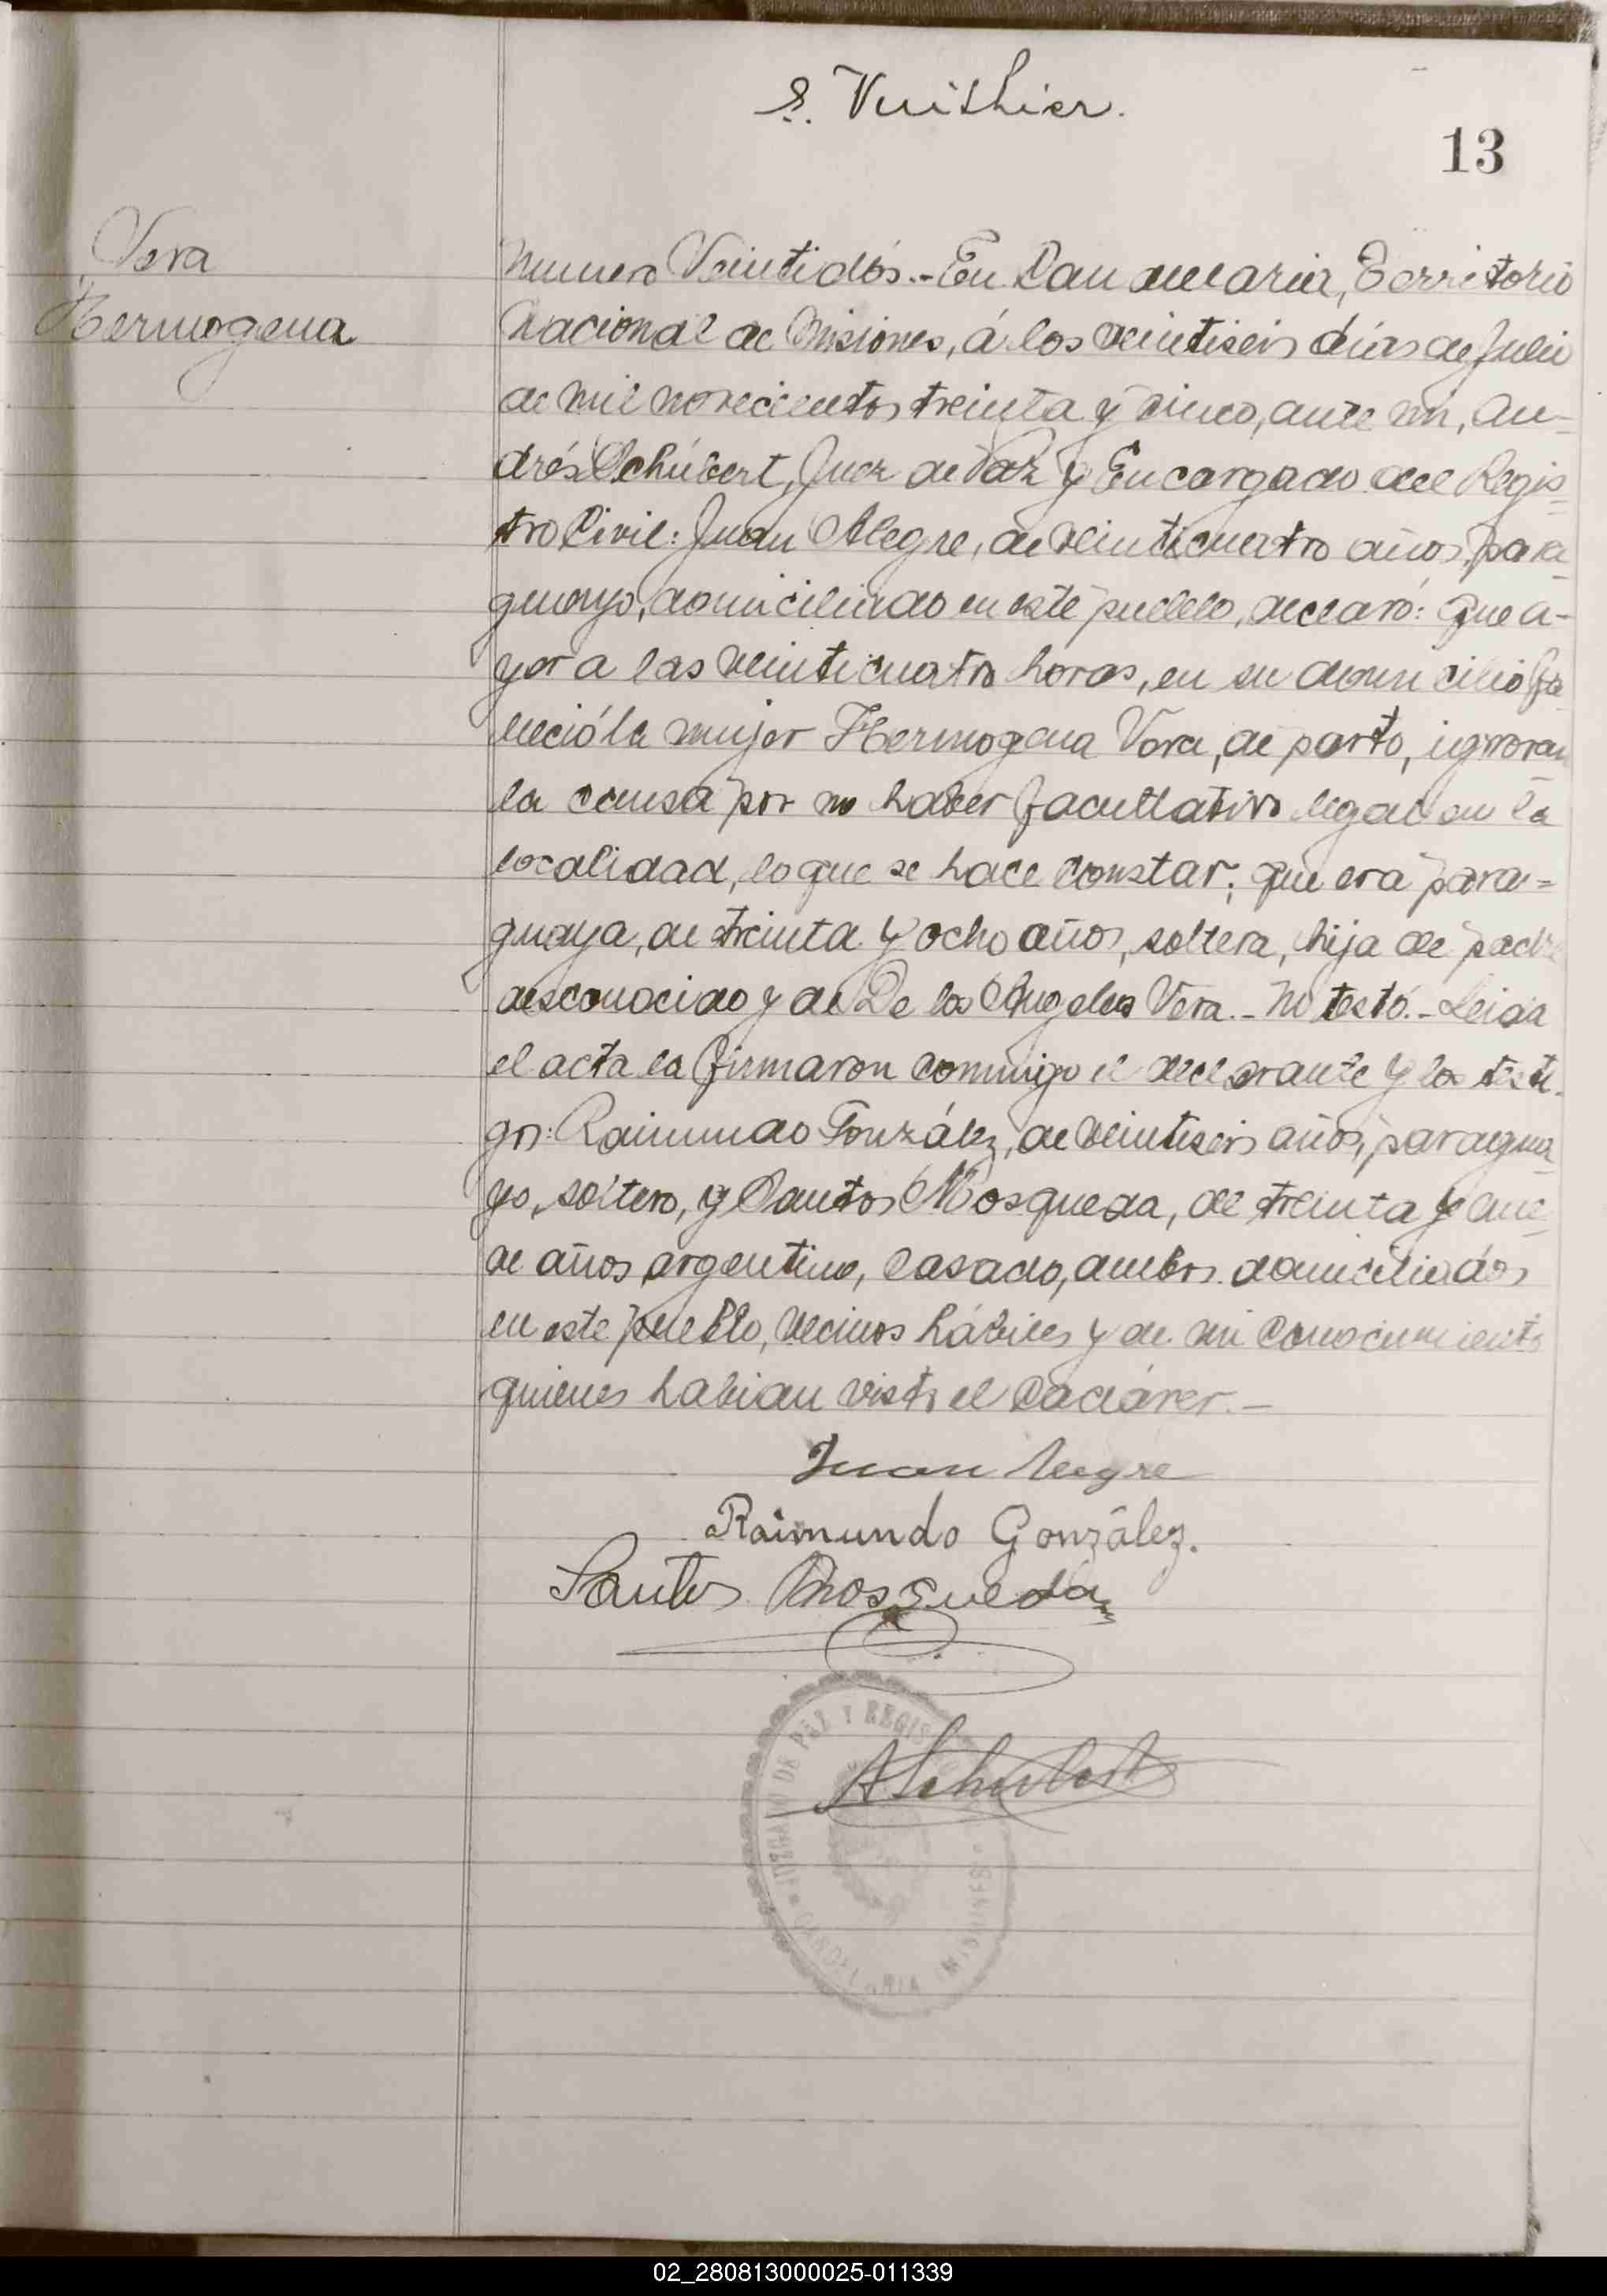 S. Vuithier.
13
Vera
Hermogena
Numero Veintidós.- En Candelaria, Territorio
Nacional de Misiones, á los veintiseis días de Julio
de mil novecientos treinta y cinco, ante mi, An=
drés Schúbert, Juez de Paz y Encargado del Regis=
tro Civil: Juan Alegre, de veinticuatro años, para=
guayo, domiciliado en este pueblo, declaró: Que a-
yer a las veinticuatro horas, en su domicilio fa
lleció la mujer Hermogena Vera, de parto, ignoran
la causa por no haber facultativo legal en la
localidad, lo que se hace constar; que era para=
guaya, de treinta y ocho años, soltera, hija de padre
desconocido y de De los Angeles Vera.- No testó.- Leida
el acta la firmaron conmigo el declarante y los testi-
gos: Raimundo González, de veintiseis años, paragua
yo, soltero, y Santos Mosqueda, de treinta y
de años argentino, casado, ambos domiciliados
en este pueblo, vecinos hábiles y de mi conocimiento
quienes habian visto el cadáver.-
Juan Alegre
Raimundo González.
Santos Mosqueda
A Schubert
JUZGADO DE PAZ Y REGIS
CANDELARIA (MISIONES)
02_280813000025-011339